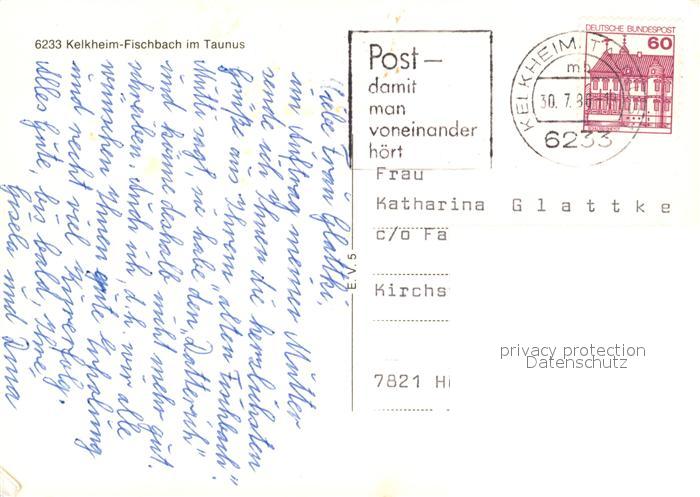 6233 Kelkheim-Fischbach im Taunus
Post –
damit
man
voneinander
hört
DEUTSCHE BUNDESPOST
60
KELKHEIM, T
mb
30. 7. 86
6233
Frau
Katharina G l a t t k e
c/o Fa
Kirchs
7821 H
E. V. 5
privacy protection
Datenschutz
Liebe Frau
im Auftrag meiner Mutter
sende ich Ihnen die herzlichsten
Grüße aus Ihrem "alten Fischbach".
Mutti sagt, sie habe den "Datterich"
und könne deshalb nicht mehr gut
schreiben. Auch ich, d.h. wir alle
wünschen Ihnen gute Erholung
und recht viel
Alles Gute, bis bald, Ihre
Gisela und